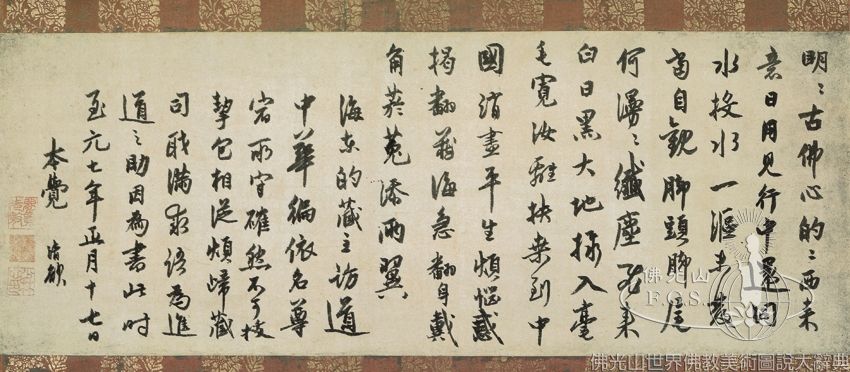 明々古佛心的々西来
意日用見行中還同
水投水一漚未發
當自觀脚頭脚尾
何漫々纖塵
白日黑大地入毫
毛寬汝離扶桒到中
國消盡平生煩惱惑
掲翻蒼海急翻身戴
角菸菟添兩翼
海東的藏主訪道
中華徧依名尊
宿所守確然不可拔
挈包相從煩歸藏
司職滿求語為進
道之助因為書此時
至元七年正月十七日
本覺 清欲
佛光山
F.G.S.
佛光山世界佛教美術圖說大辭典